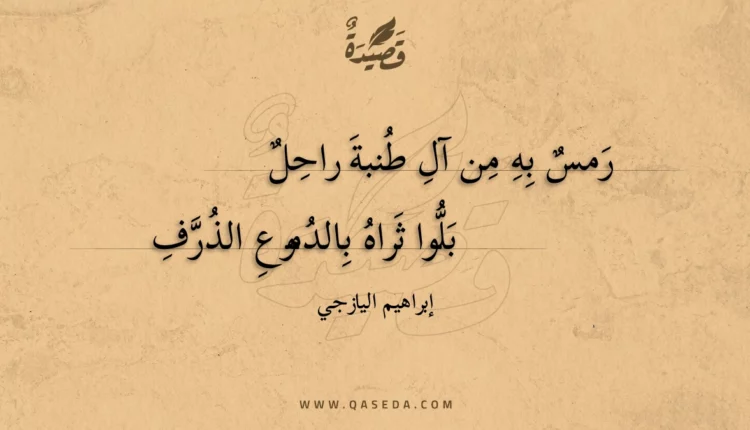 قَصِيْدَةٌ
رَمسٌ بِهِ مِن آلِ طُنبةَ راحِلٌ
بَلُّوا ثَراهُ بِالدُموعِ الذُرَّفِ
إبراهيم اليازجي
WWW.QASEDA.COM